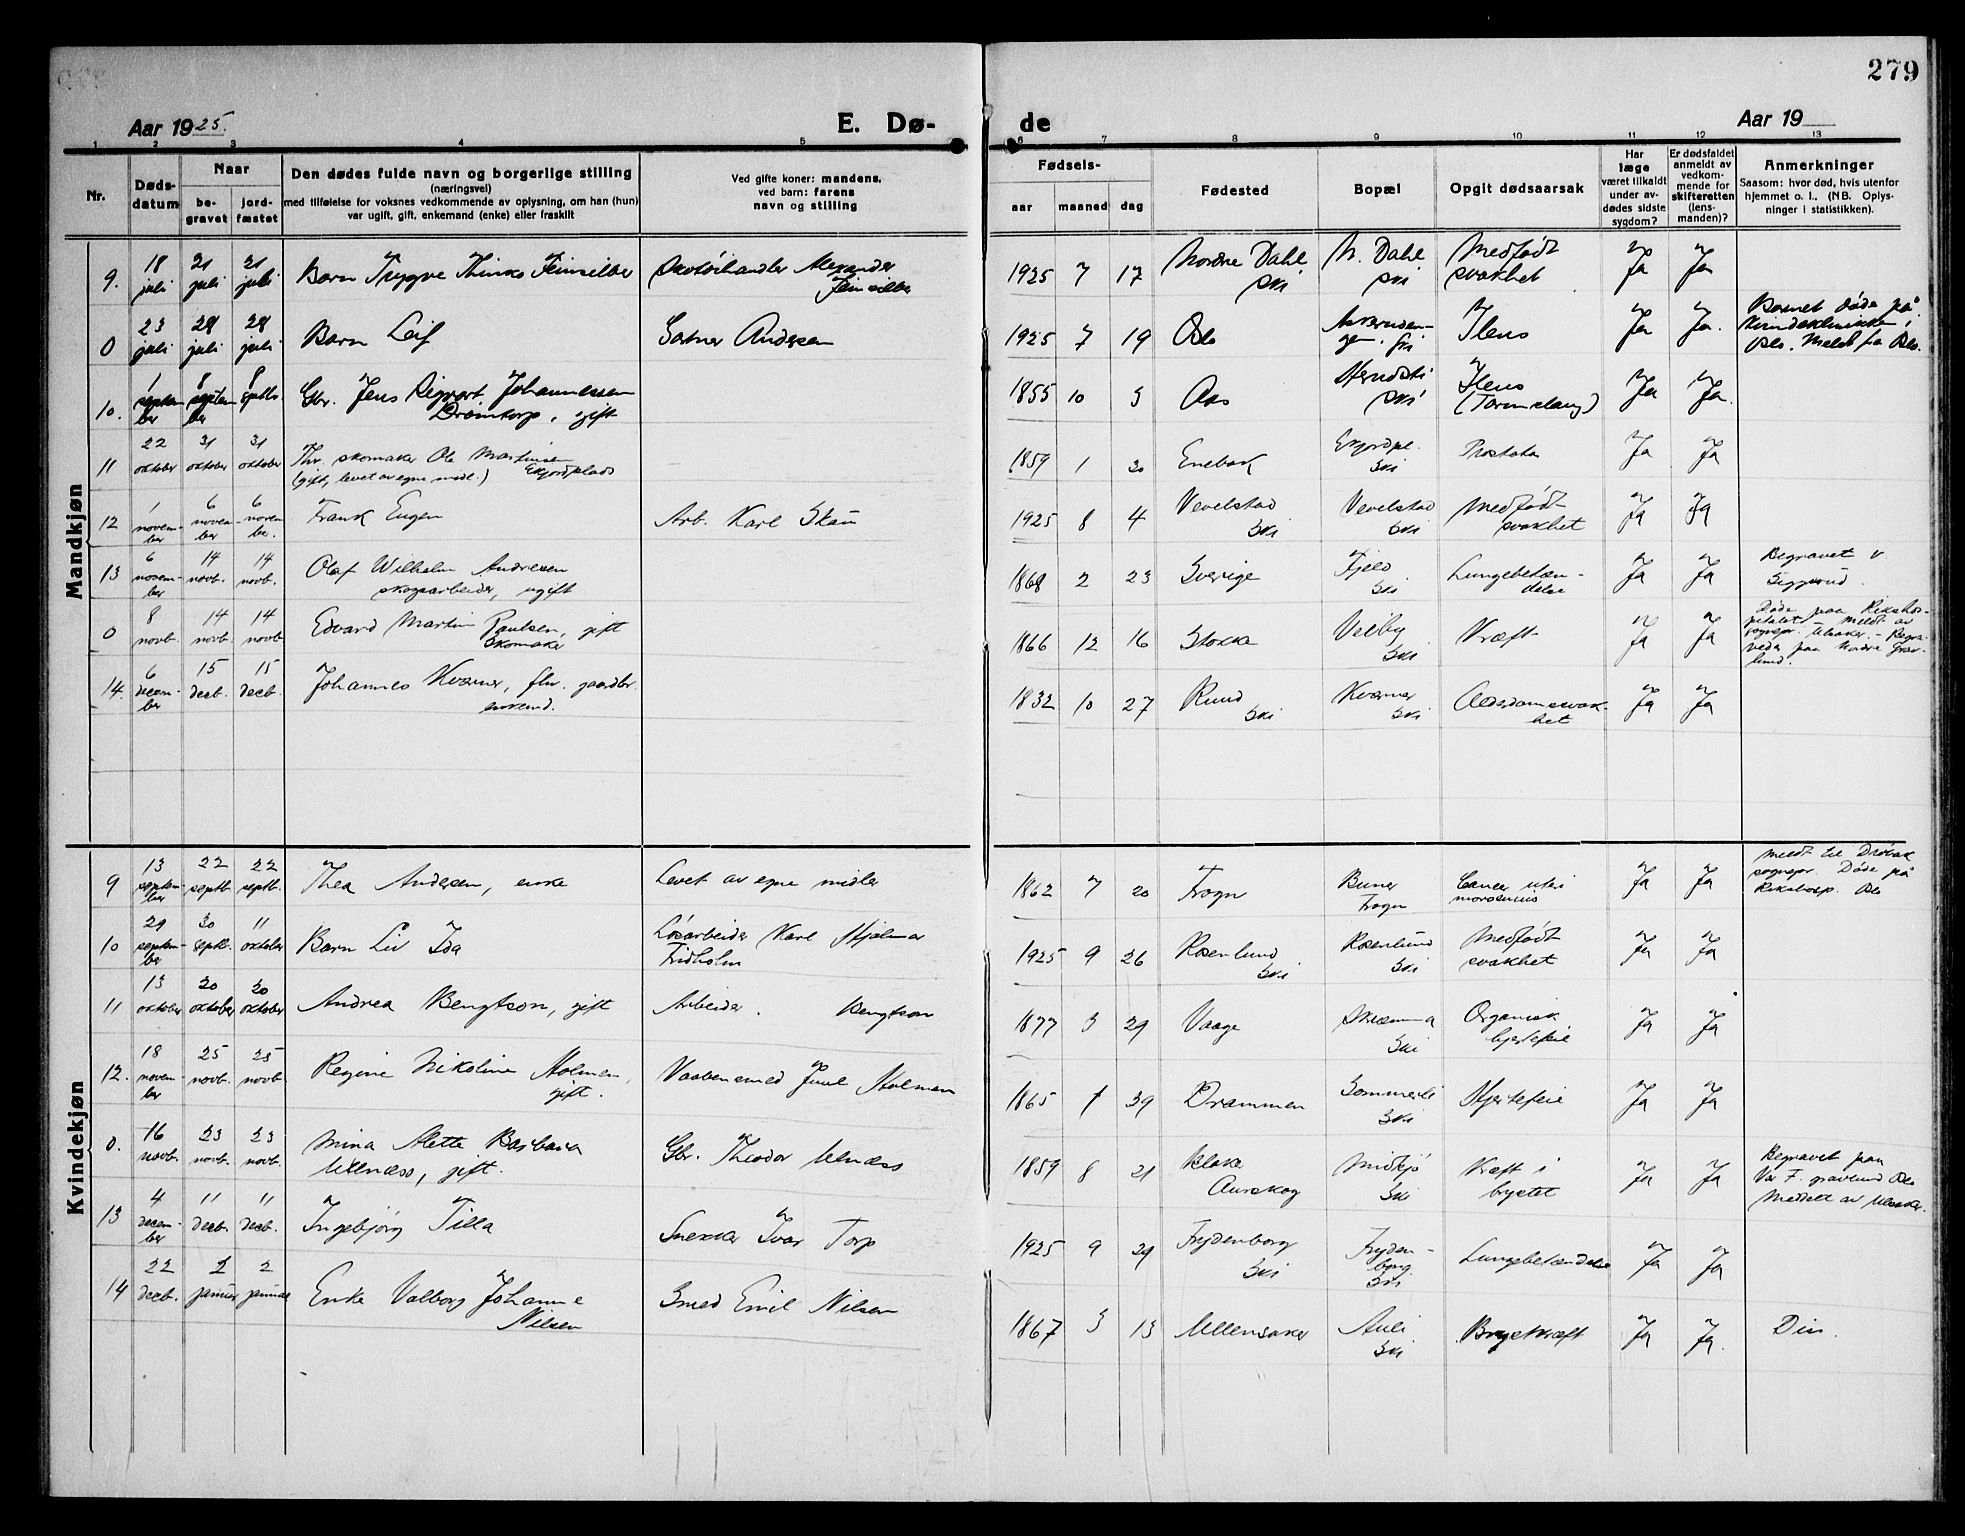 279
Aar 1925.
E. Dø-
de
Aar 19
1 2 3 4 5 6 7 8 9 10 11 12 13
Nr.
Døds-
datum
Naar
be-
gravet
jord-
fæstet
Den dødes fulde navn og borgerlige stilling
(næringsvei)
med tilføielse for voksnes vedkommende av oplysning, om han (hun)
var ugift, gift, enkemand (enke) eller fraskilt
Ved gifte koner: mandens,
ved barn: farens
navn og stilling
Fødsels-
aar
maaned
dag
Fødested
Bopæl
Opgit dødsaarsak
Har
læge
været tilkaldt
under av-
dødes sidste
sygdom?
Er dødsfaldet
anmeldt av
vedkom-
mende for
skifteretten
(lens-
manden)?
Anmerkninger
Saasom: hvor død, hvis utenfor
hjemmet o. l., (NB. Oplys-
ninger i statistikken).
Mandkjøn
9. 18 juli 21 juli 21 juli Barn Trygve Feinsilber Skotøihandler Alexander Feinsilber 1925 7 17 Nordre Dahl Ski N. Dahl Ski Medfødt svakhet Ja Ja
0 23 juli 28 juli 28 juli Barn Leif Gartner Andersen 1925 7 19 Oslo Ski Ileus Ja Ja. Barnet døde på Kvindeklinikken, Oslo. Meldt fra Oslo.
10. 1 september 8 september 8 septbr Gbr. Jens Sigvart Johannessen Dramtorp, gift 1855 10 3 Aas Ski Ileus (Tarmslyng) Ja Ja.
11 22 oktober 31 oktober 31 oktober Fhv. skomaker Ole Martinsen Ekjordplads (gift, levet av egne midl.) 1859 1 30 Enebak Ekjordpl. Ski Prostata Ja Ja
12 1 november 6 november 6 november. Frank Eugen Arb. Karl Skau 1925 8 4 Vevelstad Ski Vevelstad Ski Medfødt svakhet Ja Ja
13 6 november 14 novb. 14 novb. Olaf Wilhelm Andresen skogsarbeider, ugift 1868 2 23 Sverige Fjeld Ski Lungebetændelse Ja Ja Begravet v Siggerud.
0 8 novb. 14 novb. 14 novb. Edvard Martin Paulsen, gift Skomaker 1866 12 16 Stokke Velby Ski Kræft Ja Ja Døde paa Rikshospitalet – Meldt av sognepr. Ulsaker. – Begraves paa Nordre Gravlund.
14. 6 december 15 decb. 15 decb. Johannes Kværner, fhv. gaardbr. enkemd. 1832 10 27 Ruud Ski Kværner Ski Alderdomssvakhet Ja Ja
Kvindekjøn
9 13 september 22 septb. 22 septb. Thea Andersen, enke Levet av egne midler 1862 7 20 Frogn Buner Frogn Cancer uteri Ja Ja Meldt til Drøbak sognepr. Døde på Rikshosp. Oslo
10 29 september 30 septb. 11 oktober Barn Liv Ida Løsarbeider Karl Hjalmar Fridholm 1925 9 26 Rosenlund Ski Rosenlund Ski Medfødt svakhet Ja Ja
11 13 oktober 20 oktober 20 oktober Andrea Bengtson, gift Arbeider. Bengtson 1877 3 29 Vaage Ski Organisk hjertefeil Ja Ja
12. 18 november 25 novb. 25 novb. Regine Nikoline Holmen, gift. Vaabensmed Juul Holmen 1865 1 Drammen Sommerli Ski Hjertefeil Ja Ja
0. 16 novb. 23 novb. 23 novb. Mina Alette Barbara Ulnæss, gift. Gbr. Theodor Ulnæss 1859 8 21 Aurskog Midsjø Ski Kræft i brystet Ja Ja Begravet paa Vår F. gravlund Oslo Meddelt av Ulsaker.
13 4 december 11 decb. 11 decb. Ingebjørg Tilla Snekker Ivar Torp 1925 9 29 Frydenborg Ski Frydenborg Ski Lungebetændelse Ja Ja
14 22 decb. 2 januar 2 januar Enke Valborg Johanne Nilsen Smed Emil Nilsen 1867 3 13 Ullensaker Auli Ski Brystkræft Ja Ja.